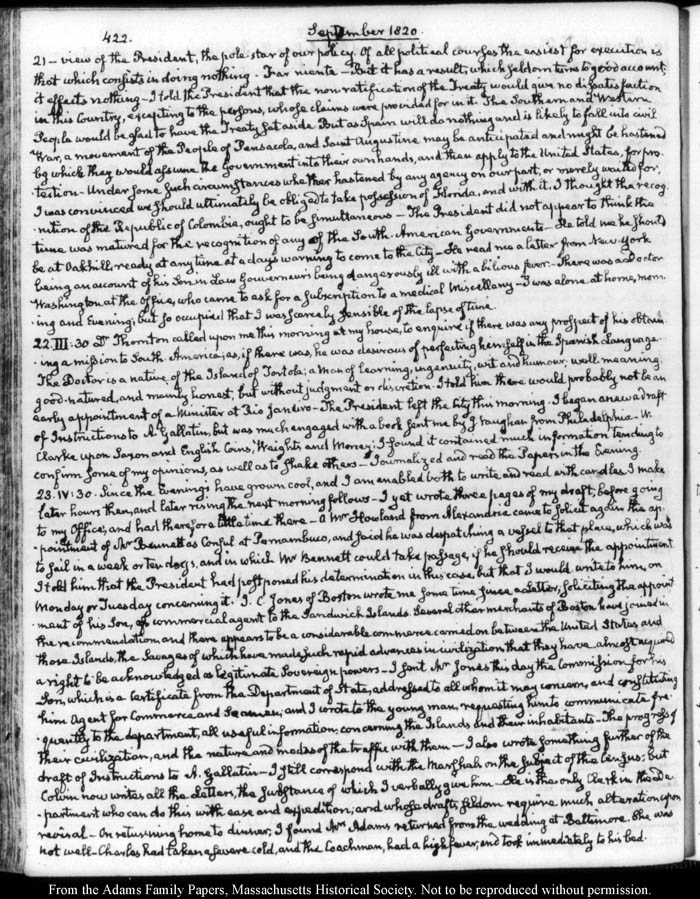 422. September 1820.
21 — view of the President, the pole star of our policy. Of all political courses the easiest for execution is
that which consists in doing nothing. Far niente — But it has a result, which seldom turns to good account;
it effects nothing — I told the President that the non ratification of the Treaty would give no dissatisfaction
in this Country, excepting to the persons, whose claims were provided for in it. The Southern and Western
People would be glad to have the Treaty set aside. But as Spain will do nothing and is likely to fall into civil
War, a movement of the People of Pensacola, and Saint Augustine may be anticipated and might be hastened
by which they would assume the Government into their own hands, and then apply to the United States, for pro-
-tection. Under some such circumstances whether hastened by any agency on our part, or merely waited for,
I was convinced we should ultimately be obliged to take possession of Florida, and with it, I thought the recog-
-nition of the Republic of Colombia, ought to be simultaneous — The President did not appear to think the
time was matured for the recognition of any of the South-American Governments — He told me he should
be at Oakhill, ready at any time at a days warning to come to the City — He read me a letter from New-York
being an account of his Son in Law Gouverneur's being dangerously ill with a bilious fever. There was a Doctor
Washington at the Office, who came to ask for a subscription to a medical Miscellany — I was alone at home, morn-
ing and Evening; but so occupied that I was scarcely sensible of the lapse of time.
22. III:30 Dr Thornton called upon me this morning at my house, to enquire if there was any prospect of his obtain-
-ing a mission to South America; as, if there was, he was desirous of perfecting himself in the Spanish Language.
The Doctor is a native of the Island of Tortola; a man of learning, ingenuity, wit and humour; well meaning,
good-natured, and mainly honest, but without judgment or discretion. I told him there would probably not be an
early appointment of a Minister at Rio Janeiro — The President left the City this morning. I began a new draft
of Instructions to A. Gallatin, but was much engaged with a book sent me by J. Vaughan from Philadelphia — W.
Clarke upon Saxon and English Coins, Weights and Money; I found it contained much information tending to
confirm some of my opinions, as well as to shake others — I journalized and read the Papers in the Evening.
23. IV:30. Since the Evenings have grown cool, and I am enabled both to write and read with candles I make
later hours then, and later rising the next morning follows — I yet wrote three pages of my draft, before going
to my Office, and had therefore little time there — A Mr Howland from Alexandria came to solicit again the ap-
-pointment of Mr Bennett as Consul at Pernambuco, and said he was despatching a vessel to that place, which was
to sail in a week or ten days, and in which Mr Bennett could take passage, if he should receive the appointment
I told him that the President had postponed his determination in this case, but that I would write to him, on
Monday or Tuesday concerning it. J. C. Jones of Boston wrote me some time since a Letter, soliciting the appoint-
ment of his Son, as commercial agent to the Sandwich Islands. Several other merchants of Boston have joined in
the recommendation, and there appears to be a considerable commerce carried on between the United States and
those Islands, the Savages of which have made such rapid advances in civilization that they have almost acquired
a right to be acknowledged as legitimate Sovereign powers — I sent Mr Jones this day the Commission for his
Son, which is a Certificate from the Department of State, addressed to all whom it may concern, and constituting
him Agent for Commerce and Seamen, and I wrote to the young man requesting him to communicate fre-
-quently to the department, all useful information, concerning the Islands and their inhabitants — The progress of
their civilization, and the nature and modes of the traffic with them — I also wrote something further of the
draft of Instructions to A. Gallatin — I still correspond with the Marshals on the subject of the Census; but
Colvin now writes all the Letters, the substance of which I verbally give him — He is the only Clerk in the De-
-partment who can do this with ease and expedition; and whose drafts, seldom require much alteration upon
revisal — On returning home to dinner, I found Mrs Adams returned from the wedding at Baltimore. She was
not well — Charles had taken a severe cold, and the Coachman, had a high fever, and took immediately to his bed.
From the Adams Family Papers, Massachusetts Historical Society. Not to be reproduced without permission.